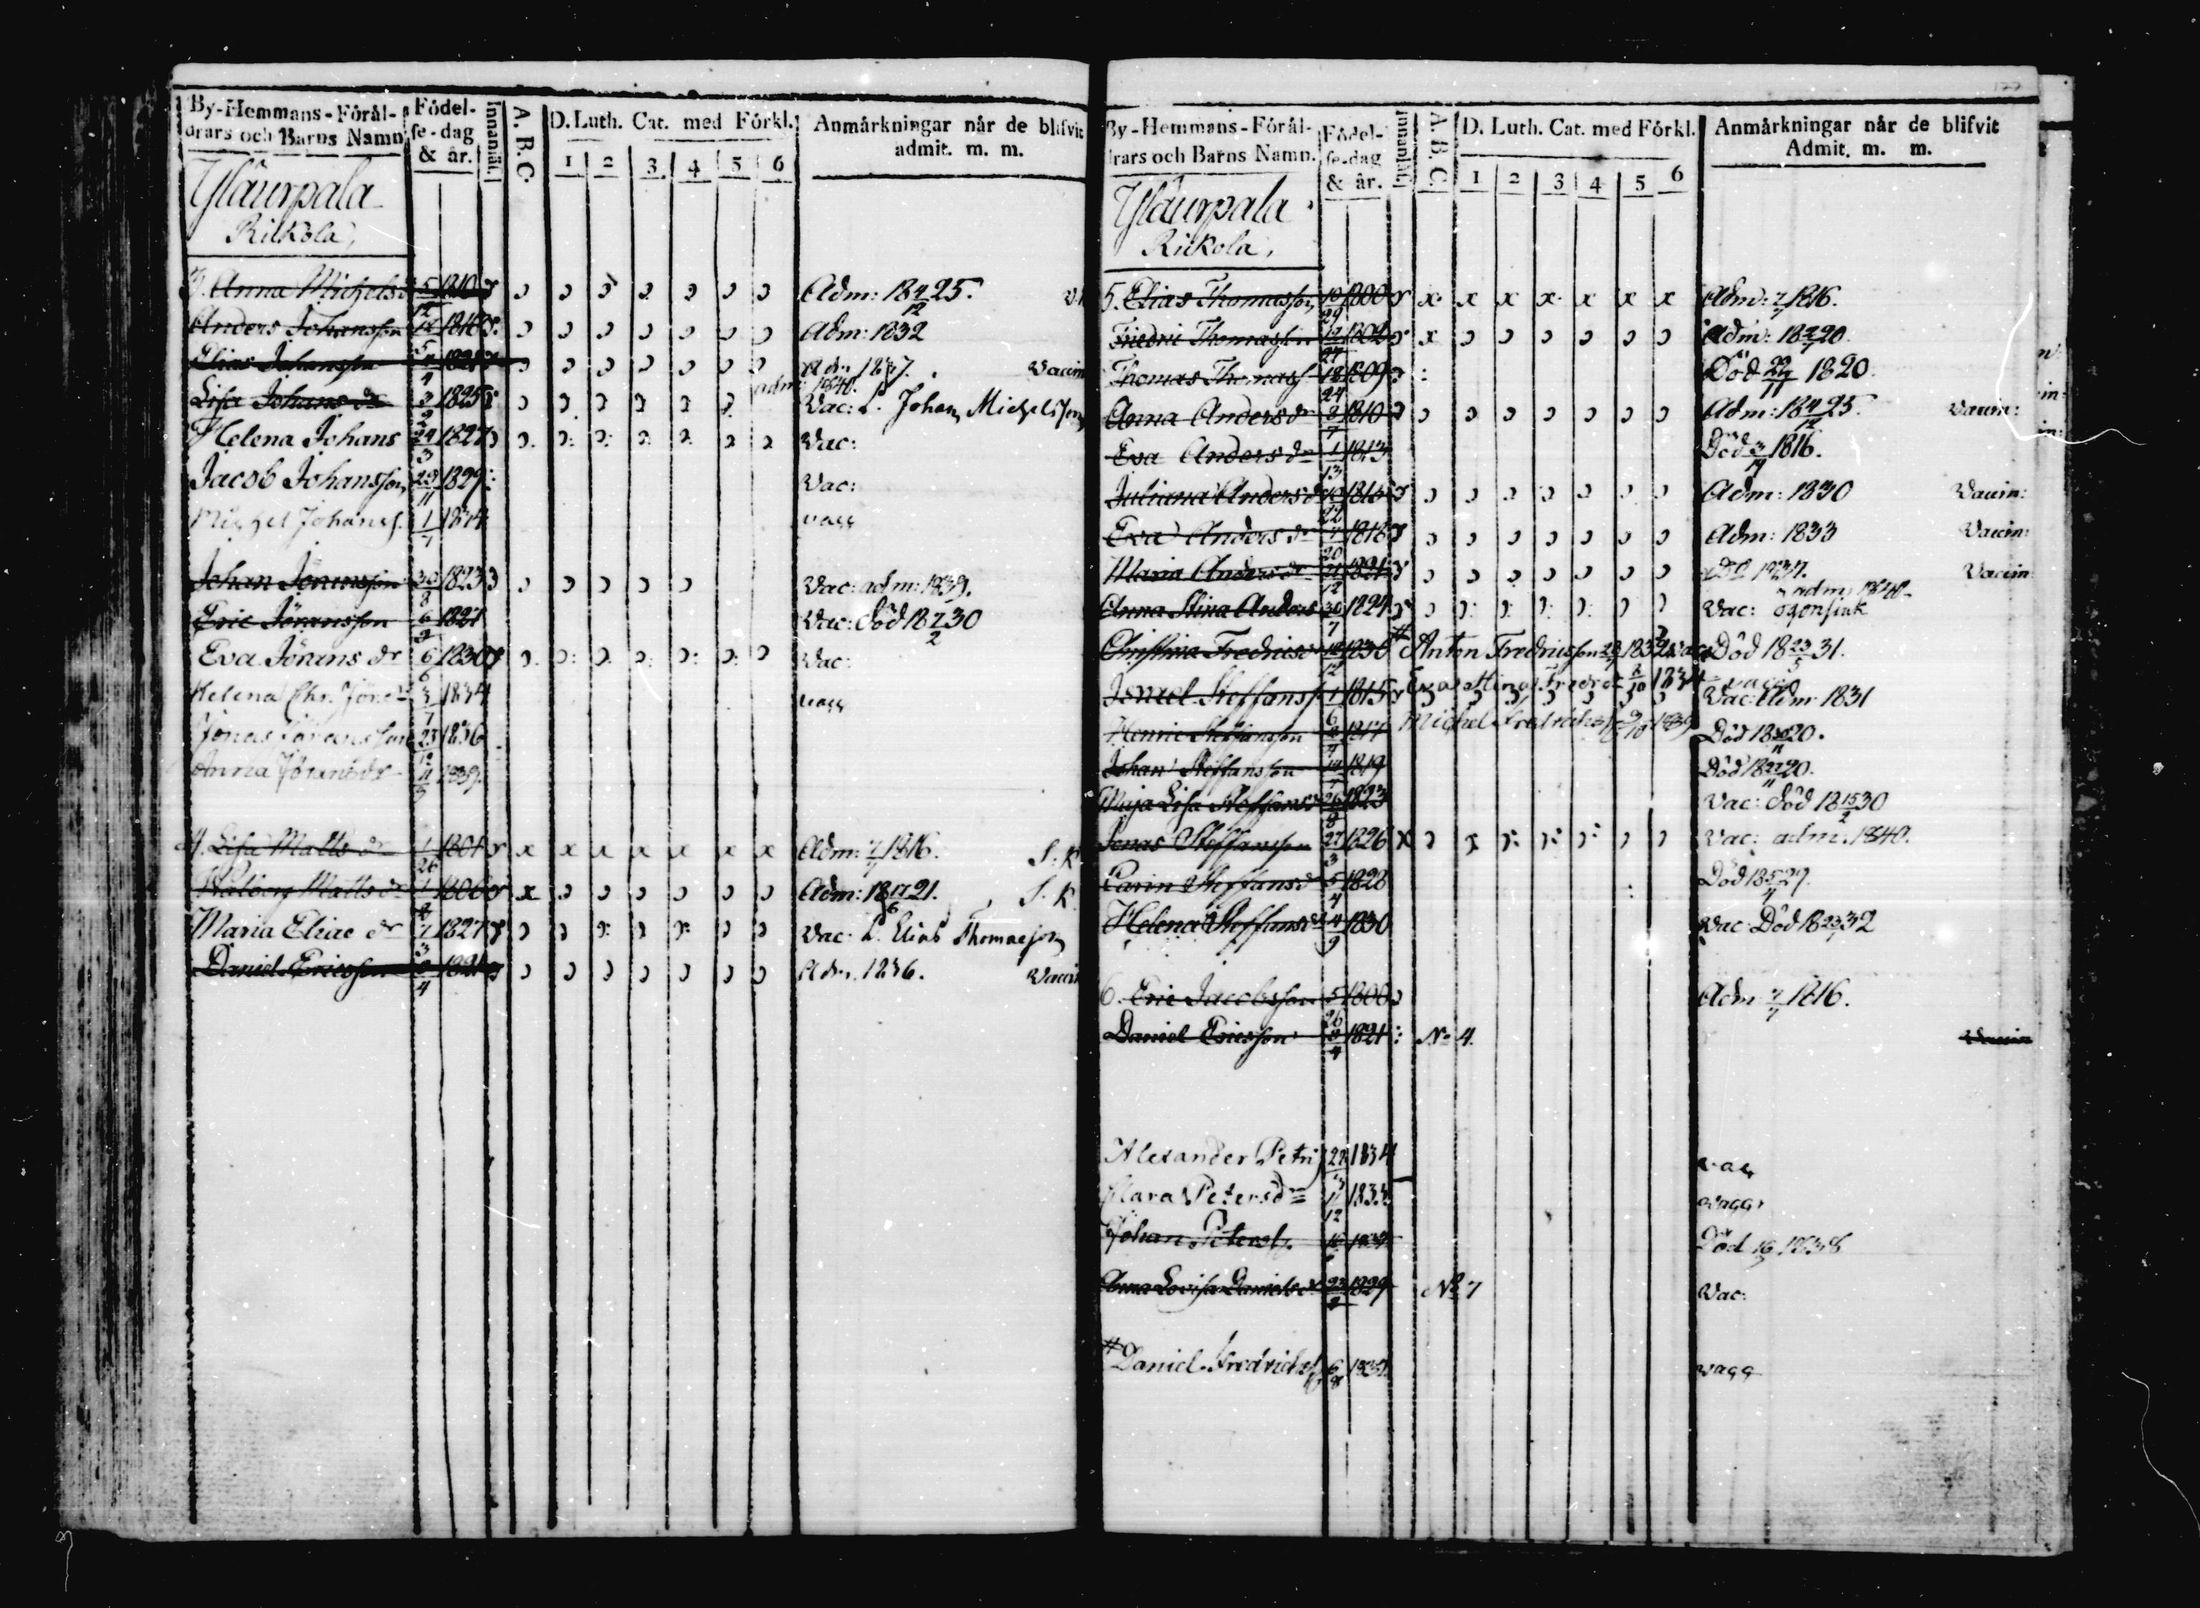 By-Hemmans-Förål-
drars och Barns Namn
Födel-
se-dag
& år.
Innanläs.
A. B. C.
D. Luth. Cat. med Förkl.
1 2 3 4 5 6
Anmärkningar når de blifvit
admit. m. m.
Yläurpala
Rikkola,
3. Anna Michelsd 5 1810 Adm: 18 4/12 25.
Anders Johansson 1816 Adm: 1832
Elias Johansson 1821 Adm 1837. Vaccin
Lisa Johans dr 1825 adm: 1840. Vac: L. Johan Michelsson
Helena Johans 24/3 1827 Vac:
Jacob Johansson 23/11 1829 Vac:
Michel Johanss. 1/7 1834 vacc
Johan Jöransson 30/8 1823 Vac: adm: 1839.
Eric Jöransson 1827 Vac: död 18 7/2 30
Eva Jörans dr 6/6 1830 Vac:
Helena Chr. Jöred 3/7 1834 vacc
Jonas Jöransson 23/12 1836
Anna Jöransdr 1839.
4. Lisa Matts dr 1801 x x x x x x x Adm: 7/7 1816. S. K.
Walborg Matts dr 1806 x Adm: 18 17/6 21. S. K.
Maria Elias dr 7/3 1827 Vac: L. Elias Thomasson
Daniel Ericsson 8/4 1821 Adm. 1836. Vaccin
By-Hemmans-Förål-
drars och Barns Namn.
Födel-
se-dag
& år.
Innanläs.
A. B. C.
D. Luth. Cat. med Förkl.
1 2 3 4 5 6
Anmärkningar når de blifvit
Admit. m. m.
Yläurpala
Rikkola,
5. Elias Thomasson 1800 x x x x x x x Adm: 7/7 1816.
Friedric Thomasson 1802 x Adm: 18 2/7 20.
Thomas Thomass 1809 Död 1820
Anna Anders dr 8/7 1810 Adm: 18 4/12 25. Vaccin:
Eva Anders dr 1813 Död 3/19 1816.
Juliana Anders d 1815 Adm: 1830 Vaccin:
Eva Anders dr 1818 Adm: 1833 Vaccin:
Maria Anders dr 21/12 1821 1837. Vaccin
Anna Stina Anders 30/7 1824 Vac: adm: 1840
Christina Fredricsd 18/12 1830 # Anton Fredricsson 1832 vacc Död 18 23/5 31.
Ismael Steffanss 1815 Eva Stina Fredr dr 1834 vacc Vac: Adm: 1831
Henric Steffansson 1817 Michel Fredrichss 1839 Död 18 20.
Johan Steffansson 1819 Död 18 27/11 20.
Maja Lisa Steffansd 26/8 1823 Vac: död 18 15/2 30
Jonas Steffansson 27/3 1826 Vac: adm. 1840.
Carin Steffansd 5/4 1828 Död 18 5/4 29.
Helena Steffansd 4/9 1830 Vac Död 18 23/1 32
6. Eric Jacobsson 5 1800 Adm 7/7 1816.
Daniel Ericsson 8/4 1821 No 4. Vaccin
Alexander Petri 1834 vac
Clara Petersdr 11/12 1833 vacc
Johan Peterss 1837 Död 1838
Anna Lovisa Daniels d 23/2 1829 No 7 Vac:
# Daniel Fredrichss 6/8 1837 vacc